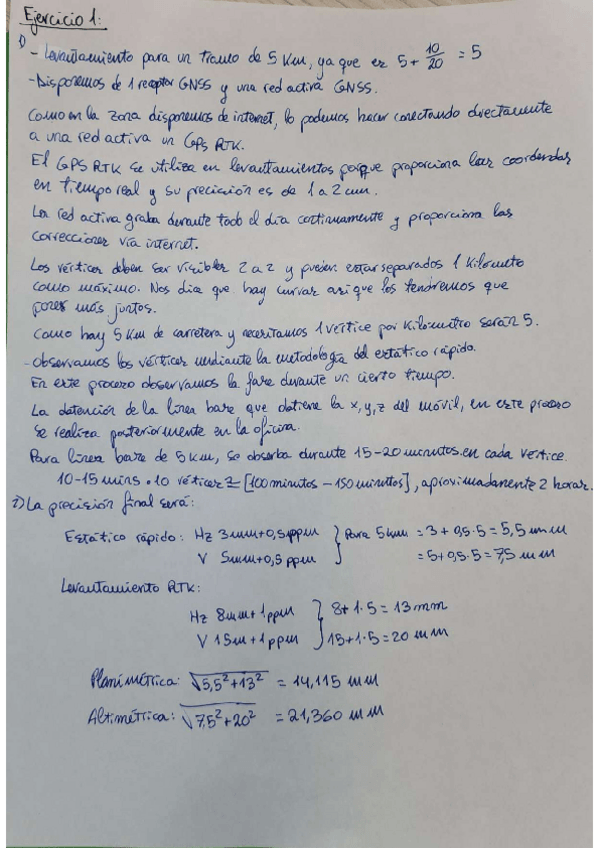 Ejercicio 1:
1)
- Levantamiento para un tramo de 5 Km, ya que es 5 + 10/20 = 5
- Disponemos de 1 receptor GNSS y una red activa GNSS.
Como en la zona disponemos de internet, lo podemos hacer conectando directamente
a una red activa un GPS RTK.
El GPS RTK se utiliza en levantamientos porque proporciona las coordendas
en tiempo real y su precisión es de 1 a 2 cm.
La red activa graba durante todo el día continuamente y proporciona las
correcciones vía internet.
Los vértices deben ser visibles 2 a 2 y pueden estar separados 1 Kilometro
como máximo. Nos dice que hay curvas así que los tendremos que
poner más juntos.
Como hay 5 Km de carretera y necesitamos 1 vértice por Kilometro serán 5.
- Observamos los vértices mediante la metodología del estático rápido.
En este proceso observamos la fase durante un cierto tiempo.
La obtención de la línea base que obtiene la x, y, z del móvil, en este proceso
se realiza posteriormente en la oficina.
Para línea base de 5 Km, se observa durante 15-20 minutos en cada vértice.
10-15 mins · 10 vértices = [100 minutos - 150 minutos], aproximadamente 2 horas.
2) La precisión final será:
Estático rápido: Hz 3mm+0,5ppm } Para 5 km = 3 + 0,5·5 = 5,5 mm
V 5mm+0,5 ppm = 5+0,5·5 = 7,5 mm
Levantamiento RTK:
Hz 8mm+1ppm } 8+1·5 = 13 mm
V 15m+1ppm 15+1·5 = 20 mm
Planimétrica: √5,5²+13² = 14,115 mm
Altimétrica: √7,5²+20² = 21,360 mm